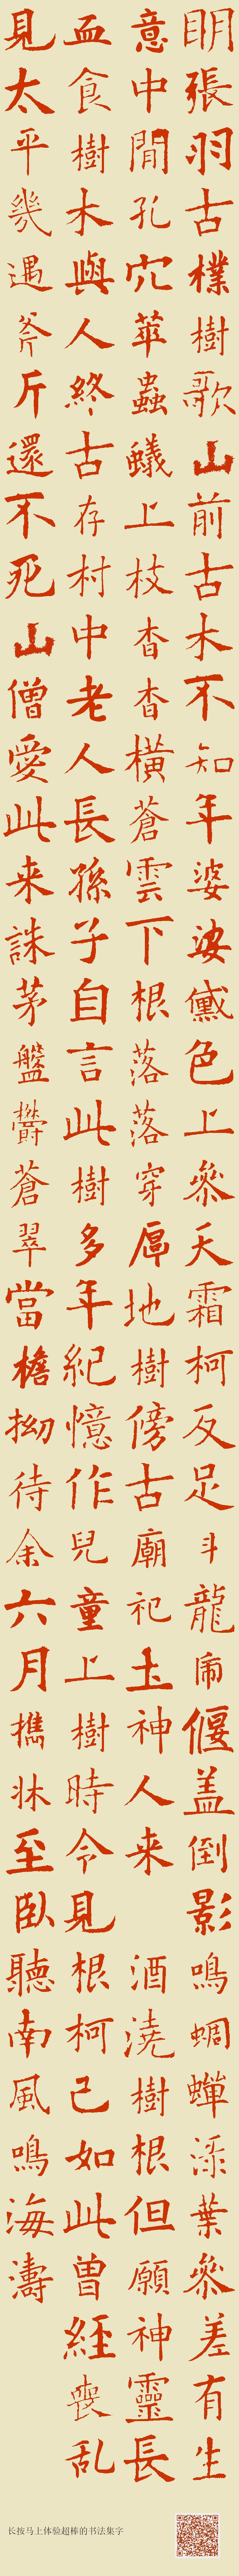 明張羽古樸樹歌山前古木不知年婆娑黛色上參天霜柯反足斗龍鬧偃盖倒影鳴蜩蟬添葉參差有生
意中閒孔穴萃蟲蟻上枝杳杳橫蒼雲下根落落穿厚地樹傍古廟祀土神人来酒澆樹根但願神靈長
血食樹木與人終古存村中老人長孫子自言此樹多年紀憶作兒童上樹時今見根柯已如此曽經喪乱
見太平幾遇斧斤還不死山僧愛此来誅茅盤欝蒼翠當檐拗待余六月攜牀至臥聽南風鳴海濤
长按马上体验超棒的书法集字